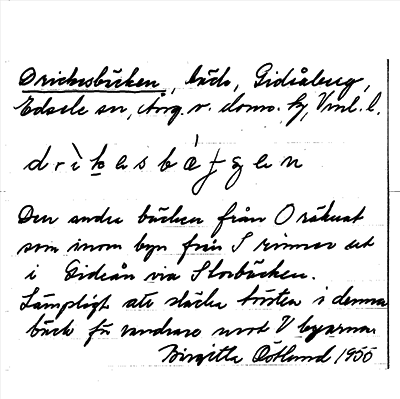 Drickesbäcken, bäck, Gideåberg,
Edsele sn, Ång. v. doms. hg, Vnl. l.
drikesbägen
Den andra bäcken från O räknat
som inom byn från S rinner ut
i Gideån via Storbäcken.
Lämpligt att släcka törsten i denna
bäck för vandrare mot V byarna.
Birgitta Östlund 1955